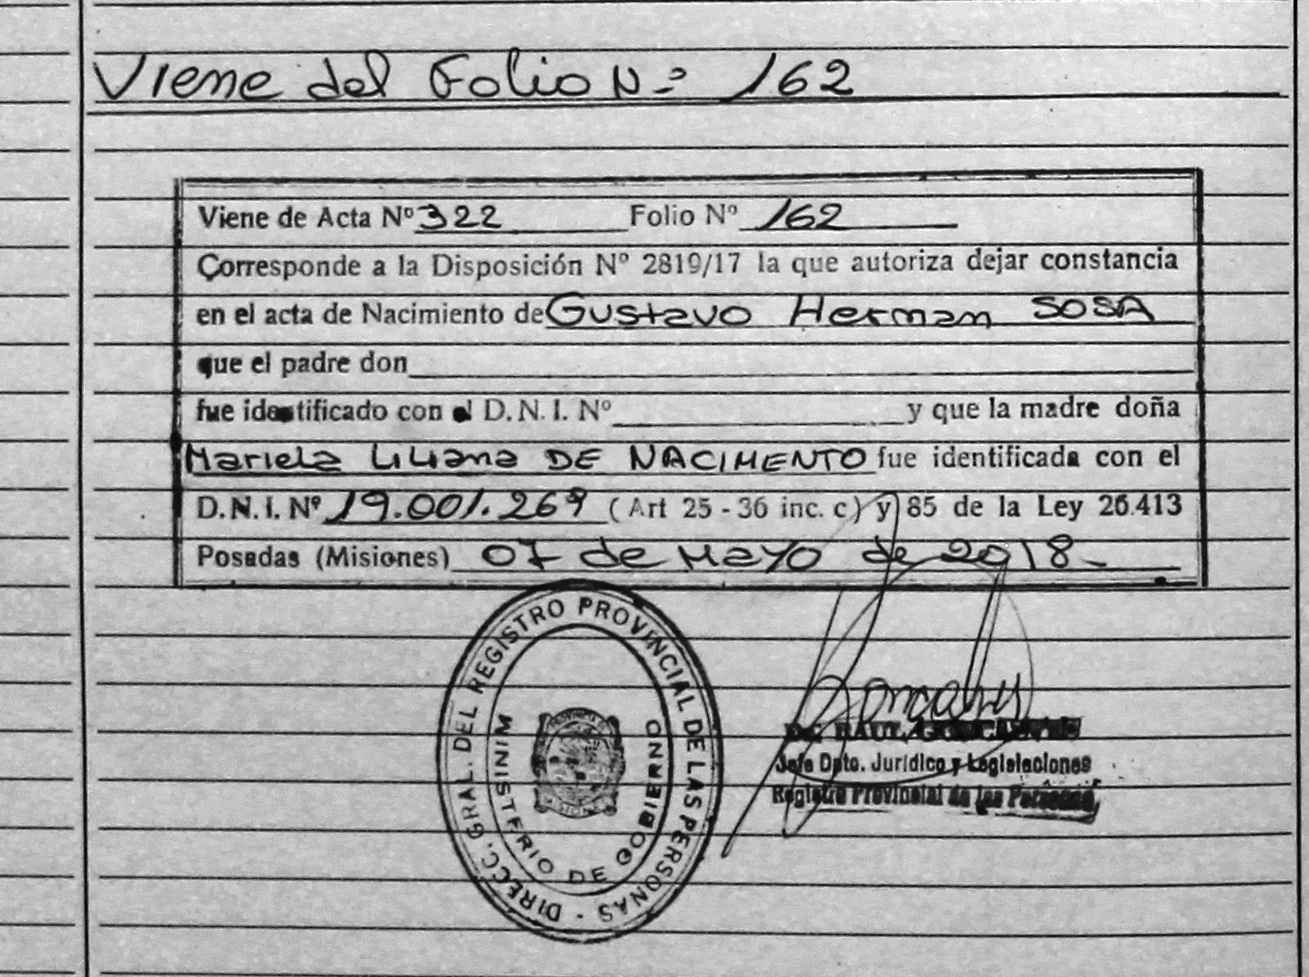 Viene del Folio N= 162
Viene de Acta Nº 322 Folio Nº 162
Corresponde a la Disposición Nº 2819/17 la que autoriza dejar constancia
en el acta de Nacimiento de Gustavo Herman SOSA
que el padre don
fue identificado con el D.N.I. Nº y que la madre doña
Mariela Liliana DE NACIMENTO fue identificada con el
D.N.I. Nº 19.001.269 (Art 25 - 36 inc. c) y 85 de la Ley 26.413
Posadas (Misiones) 07 de Mayo de 2018-
DIRECC. GRAL. DEL REGISTRO PROVINCIAL DE LAS PERSONAS -
MINISTERIO DE GOBIERNO
PROVINCIA DE
MISIONES
RAUL
Jefe Dpto. Jurídico y Legislaciones
Registro Provincial de las Personas